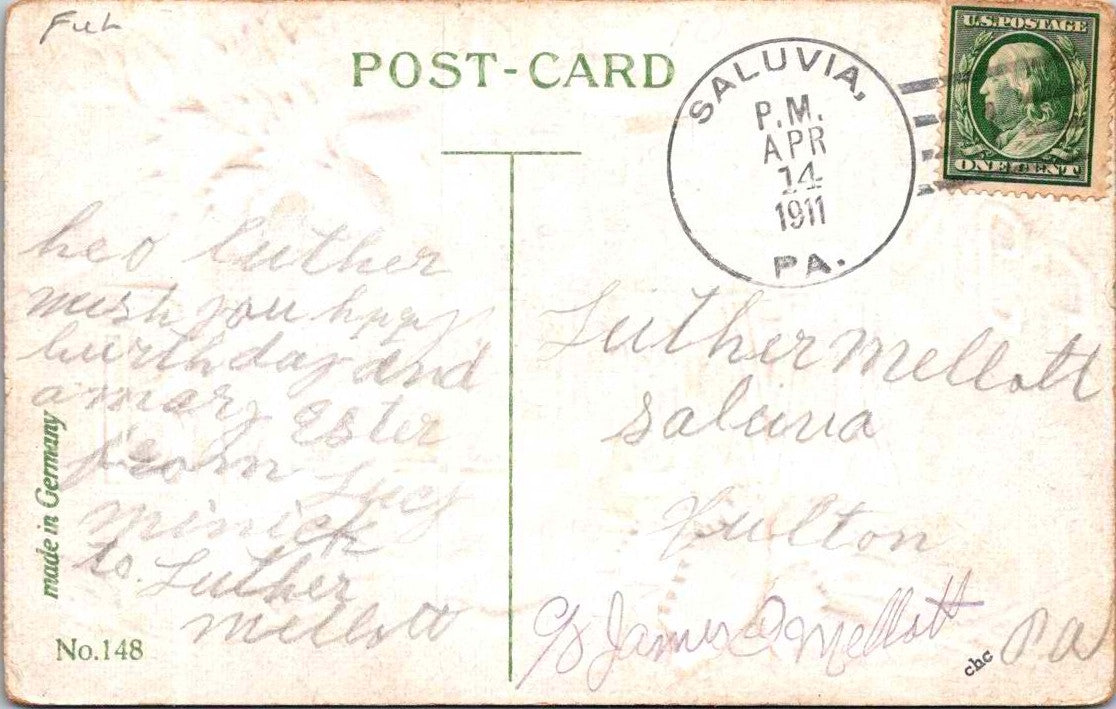 Fult
POST-CARD
U.S. POSTAGE
ONE CENT
SALUVIA,
P.M.
APR
14
1911
PA.
heo luther
wish you hppy
burthday and
a mary Ester
from Lucy
Minick
to. Luther
Mellott
Luther Mellott
Saluvia
Fulton
c/o James O Mellott
Pa
chc
made in Germany
No.148